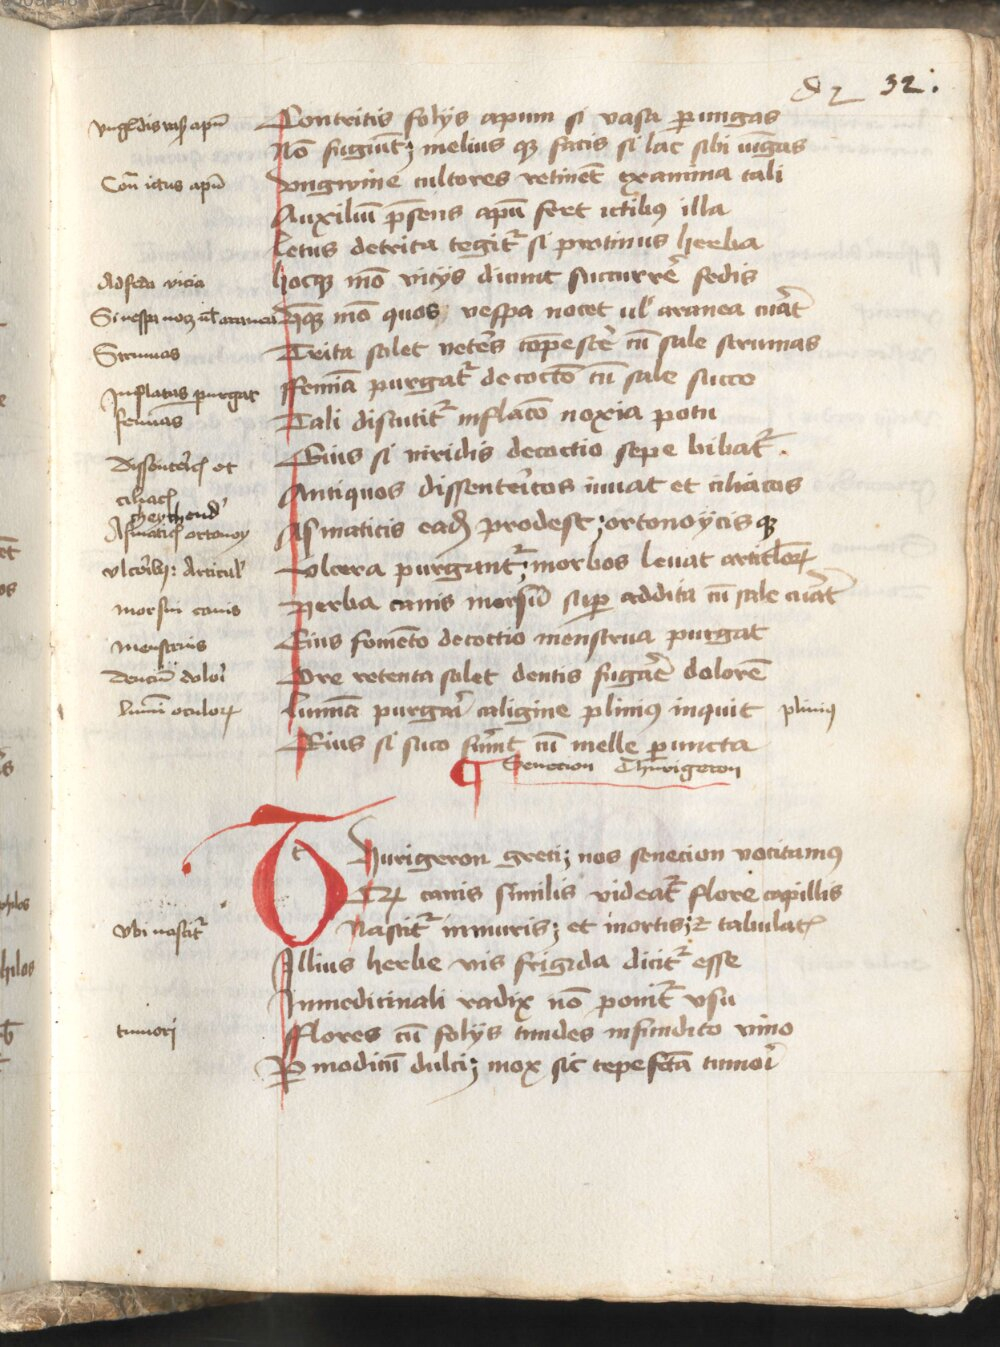 d 2 32.
Contritis folijs apum si vasa perungas
Nō fugiūt; melius qꝫ facis si lac sibi iūgas
Con̄ ictus apū
Longwine cultores retinēt examina tali
Auxiliū p̄sens apū fert ictibus illa
Letus detrita tegit᷑ si protinus herba
Ad feda vicia
hocqꝫ mō vicijs dicunt succurrē fedis
Hōcqꝫ mō quos vespa nocet ul̓ aranea cūat
Strumas
Trita solet vetēs cōpescē cū sale strumas
Inflatas purgat
feminas
ffemīa purgat᷑ decocto cū sale succo
Tali discutit᷑ inflaco noxia potu
Eius si viridis decoctio sepe bibat᷑.
Antiquos dissentericos iuuat et ciliacos
Asmaticis eadē prodest; ortonoycis qꝫ
Vlcera purgant᷑; morbos leuat articloꝝ
morsui canis
Herba canis morsū suꝑ addita cū sale cūat
menstruis
Eius fomēto decoctio menstrua purgat
Dentiū dolori
Ore retenta solet dentis fugāe dolorē
lumī oculoꝝ
Lumīa purgari caligine plinius inquit plinius
Eius si suco fūint cū melle ꝑuncta
¶ Senecion Thurigeron
Thurigeron greci; nos senecion vocitamus
Qꝝ canis similis videat᷑ flore capillis
vbi nascit᷑
Nascit᷑ in muris; et in ortis; et tabulat᷑
Illius herbe vis frigida dicit᷑ esse
In medicinali radix nō ponit᷑ vsu
tumori
fflores cū folijs tundes infundito vino
Ꝑ modicū dulci; mox sic tepefcā tumori